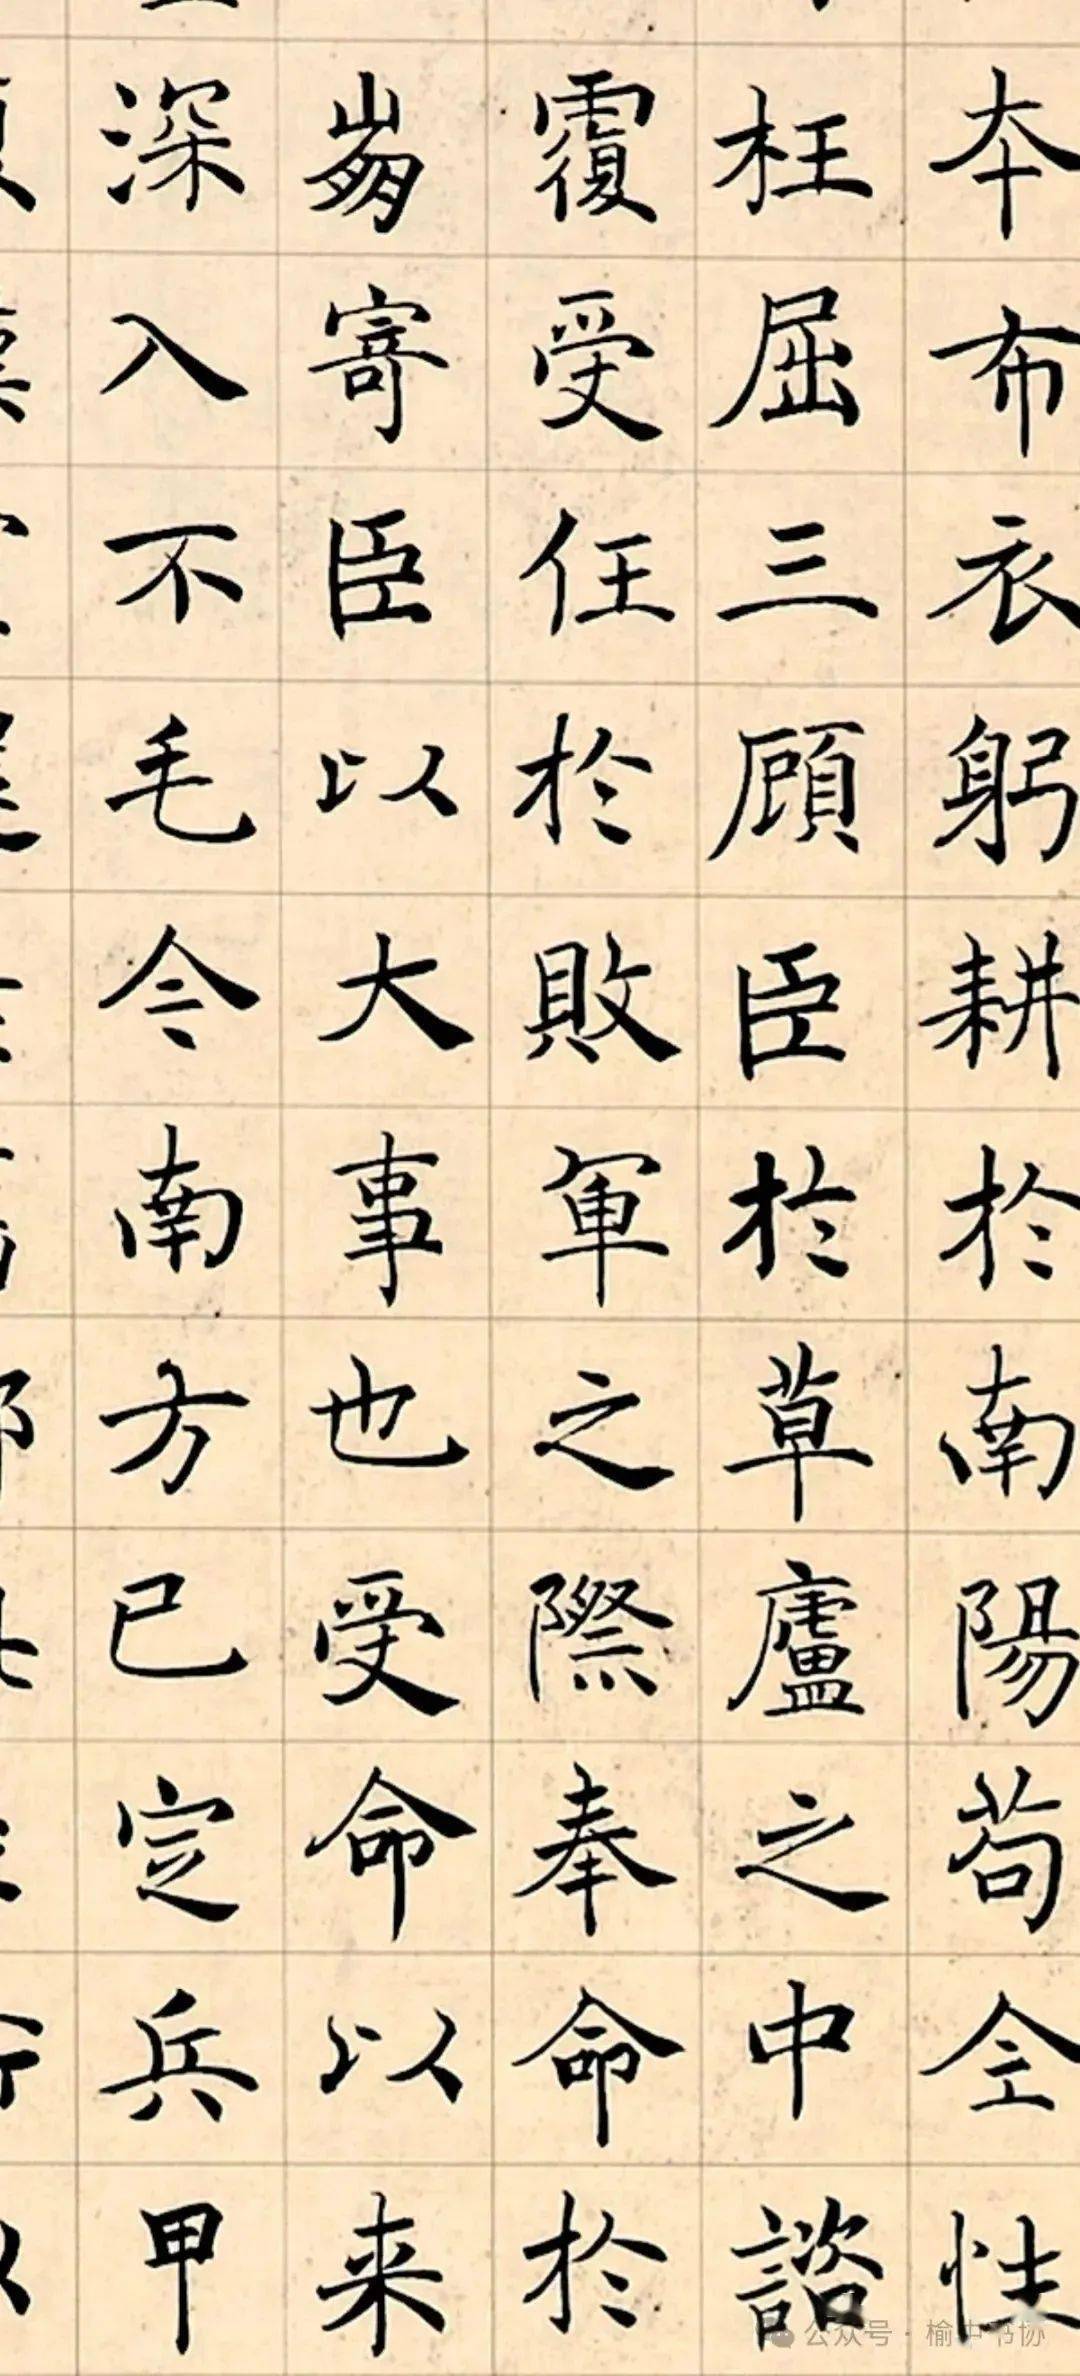 夲布衣躬耕於南陽苟全性
枉屈三顧臣於草廬之中諮
覆受任於敗軍之際奉命於
崩寄臣以大事也受命以来
深入不毛今南方已定兵甲
公众号 · 榆中书协